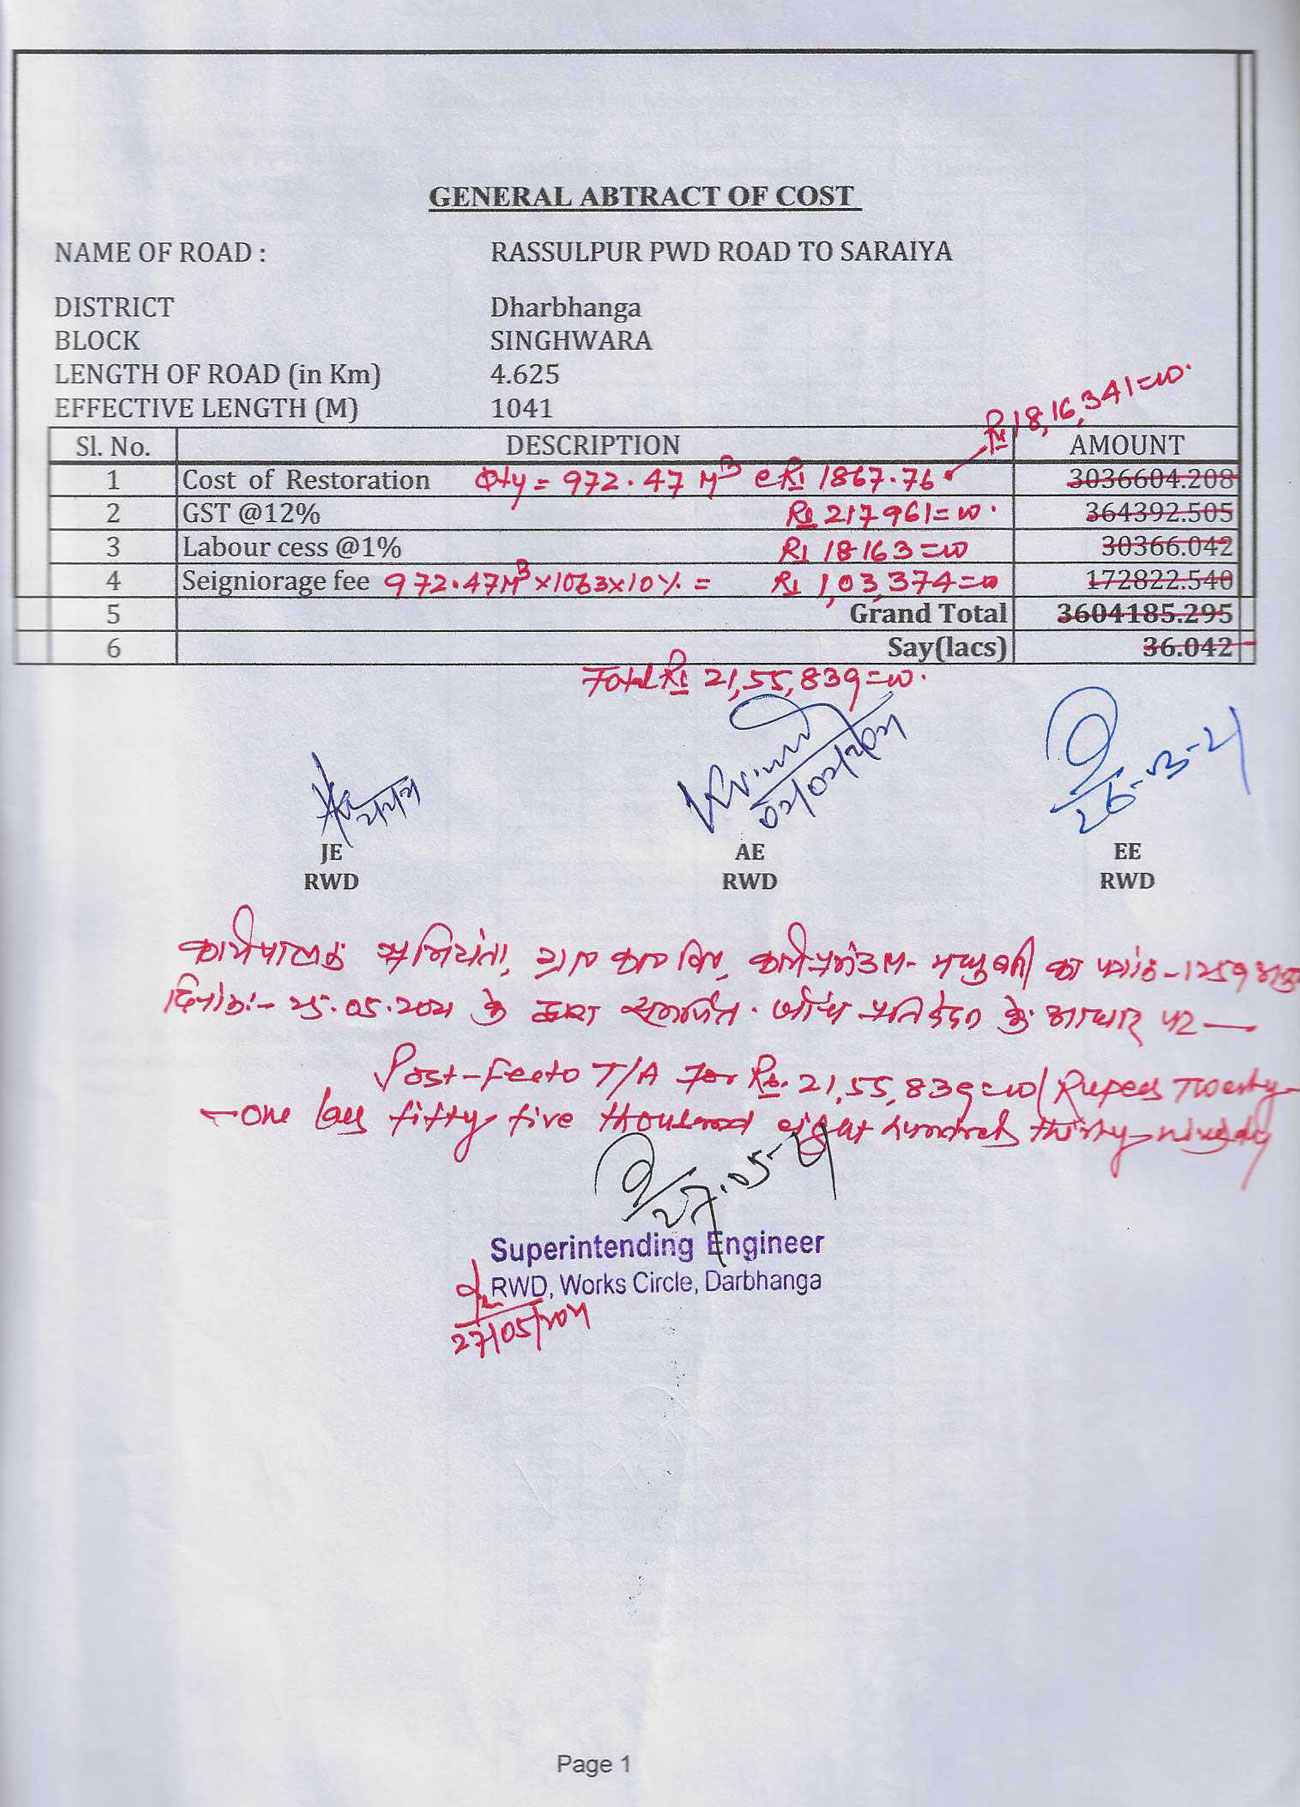 GENERAL ABTRACT OF COST
NAME OF ROAD : RASSULPUR PWD ROAD TO SARAIYA
DISTRICT Dharbhanga
BLOCK SINGHWARA
LENGTH OF ROAD (in Km) 4.625
EFFECTIVE LENGTH (M) 1041
Rs 18,16,341=00.
Sl. No. DESCRIPTION AMOUNT
1 Cost of Restoration Qty = 972.47 M3 @ Rs 1867.76 3036604.208
2 GST @12% Rs 217961=00. 364392.505
3 Labour cess @1% Rs 18163=00 30366.042
4 Seigniorage fee 972.47M3×1063×10%.= Rs 1,03,374=00 172822.540
5 Grand Total 3604185.295
6 Say(lacs) 36.042
Total Rs 21,55,839=00.
02/02/2021
26-03-21
JE AE EE
RWD RWD RWD
कार्यपालक अभियंता, कार्य प्रमंडल- का पत्रांक-1259
दिनांक:- 25.05.2021 के द्वारा समर्पित जाँच प्रतिवेदन के आधार पर —
Post-fecto T/A for Rs. 21,55,839=00 (Rupees Twenty-
-one lac fifty five thousand eight hundred thirty-nine
27.05-21
Superintending Engineer
RWD, Works Circle, Darbhanga
27/05/2021
Page 1